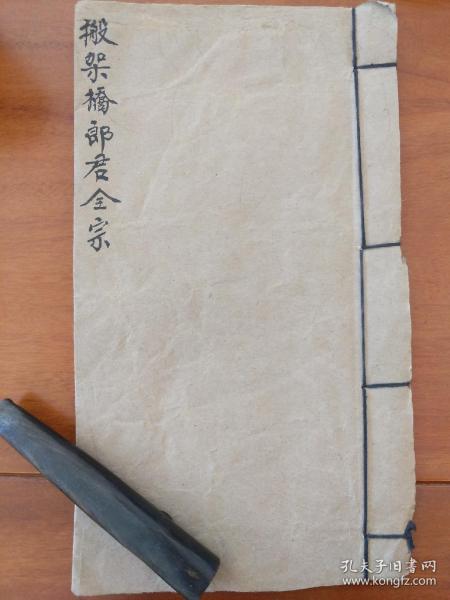 搬架橋郎君全宗
孔夫子旧书网
www.kongfz.com